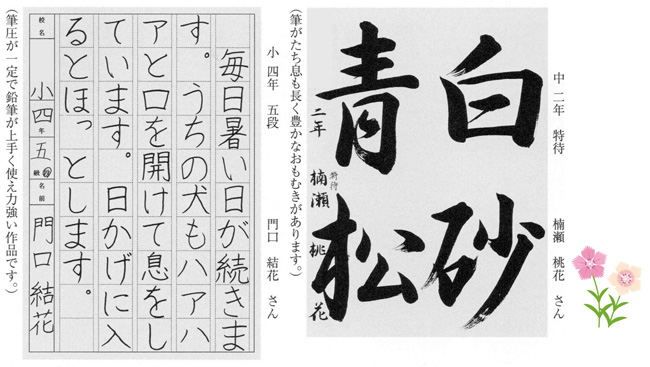 中 二年 特待 楠瀬 桃花 さん
白砂
青松
二年 特待 楠瀬 桃花
（筆がたち息も長く豊かなおもむきがあります。）
小 四年 五段 門口 結花 さん
毎日暑い日が続きま
す。うちの犬もハアハ
アと口を開けて息をし
ています。日かげに入
るとほっとします。
校名 小四年 五 級 段 名前 門口結花
（筆圧が一定で鉛筆が上手く使え力強い作品です。）